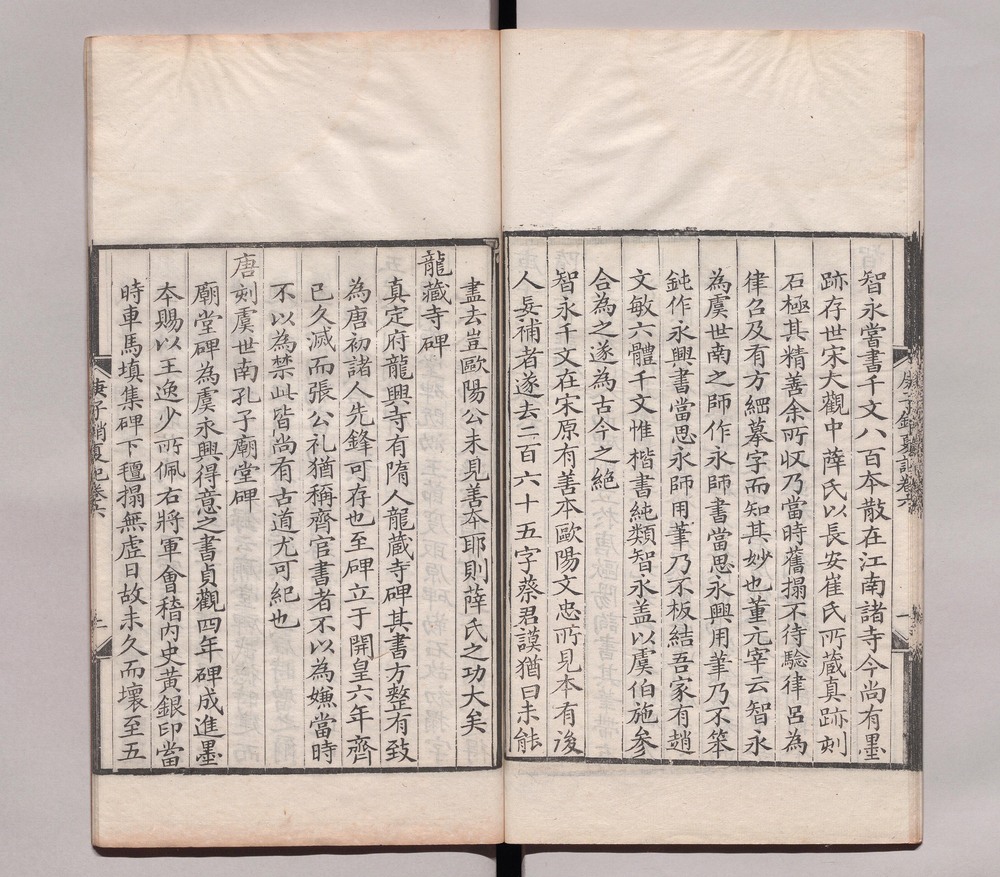 智永嘗書千文八百本散在江南諸寺今尚有墨
跡存世宋大觀中薛氏以長安崔氏所藏真跡刻
石極其精善余所收乃當時舊搨不待驗律呂為
律召及有方細摹字而知其妙也董元宰云智永
為虞世南之師作永師書當思永興用筆乃不笨
鈍作永興書當思永師用筆乃不板結吾家有趙
文敏六體千文惟楷書純類智永盖以虞伯施參
合為之遂為古今之絕
智永千文在宋原有善本歐陽文忠所見本有後
人妄補者遂去二百六十五字蔡君謨猶曰未能
盡去豈歐陽公未見善本耶則薛氏之功大矣
龍藏寺碑
真定府龍興寺有隋人龍藏寺碑其書方整有致
為唐初諸人先鋒可存也至碑立于開皇六年齊
已久滅而張公礼猶稱齊官書者不以為嫌當時
不以為禁此皆尚有古道尤可紀也
唐刻虞世南孔子廟堂碑
廟堂碑為虞永興得意之書貞觀四年碑成進墨
本賜以王逸少所佩右將軍會稽內史黃銀印當
時車馬填集碑下氊搨無虛日故未久而壞至五
庚子銷夏記卷六